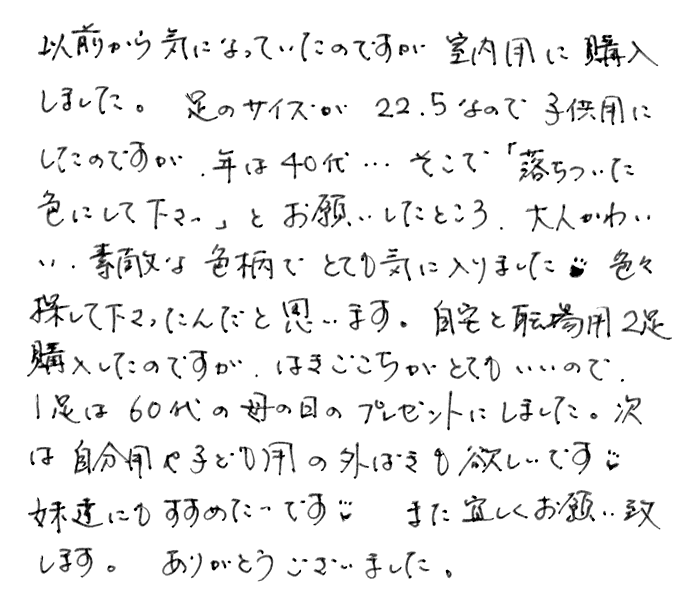 以前から気になっていたのですが 室内用に購入
しました。 足のサイズが 22.5なので 子供用に
したのですが、年は40代… そこで「落ちついた
色にして下さい」と お願いしたところ、大人かわい
い、素敵な 色柄で とても気に入りました 色々
探して下さったんだと思います。自宅と職場用2足
購入したのですが、はきごこちがとてもいいので、
1足は 60代の母の日のプレゼントにしました。次
は 自分用や子ども用の外ばきも欲しいです
妹達にもすすめたいです また宜しくお願い致
します。 ありがとうございました。